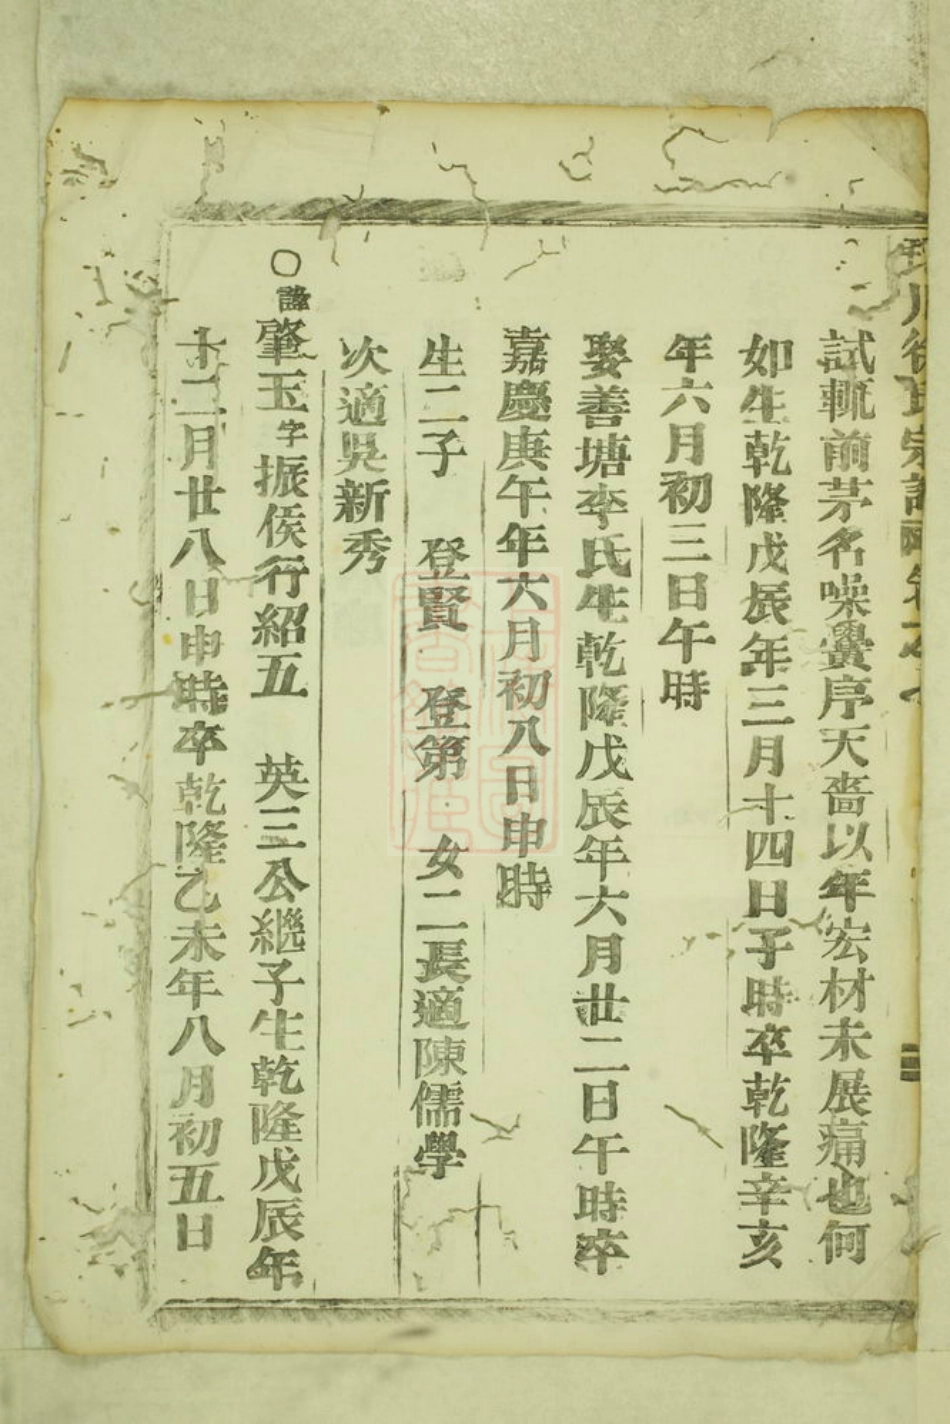 試輒前茅名噪黌序天嗇以年宏材未展痛也何
如生乾隆戊辰年三月十四日子時卒乾隆辛亥
年六月初三日午時
娶善塘李氏生乾隆戊辰年六月廿二日午時卒
嘉慶庚午年六月初八日申時
生二子　登賢　登第　女二長適陳儒學
次適吳新秀
○諱肇玉字振侯行紹五　英三公繼子生乾隆戊辰年
十二月廿八日申時卒乾隆乙未年八月初五日